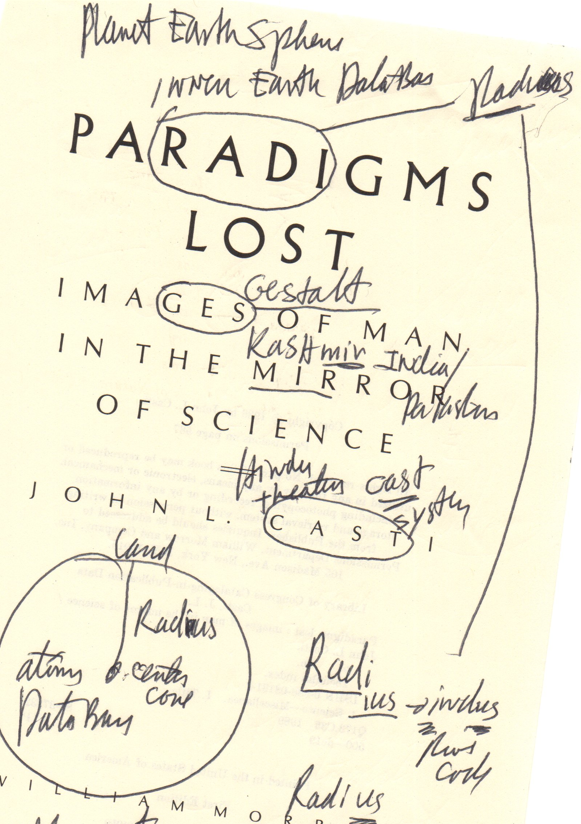 Planet Earth Sphere
inner Earth DataBas Radius
PARADIGMS
LOST
Gestalt
IMAGES OF MAN
Kashmir India/
IN THE MIRROR
Pakistan
OF SCIENCE
Hindu
theater cast
system
JOHN L. CASTI
Land
Radius
atoms center
core
DataBas
Radi
ius → indus
code
WILLIAM MORR
Radius